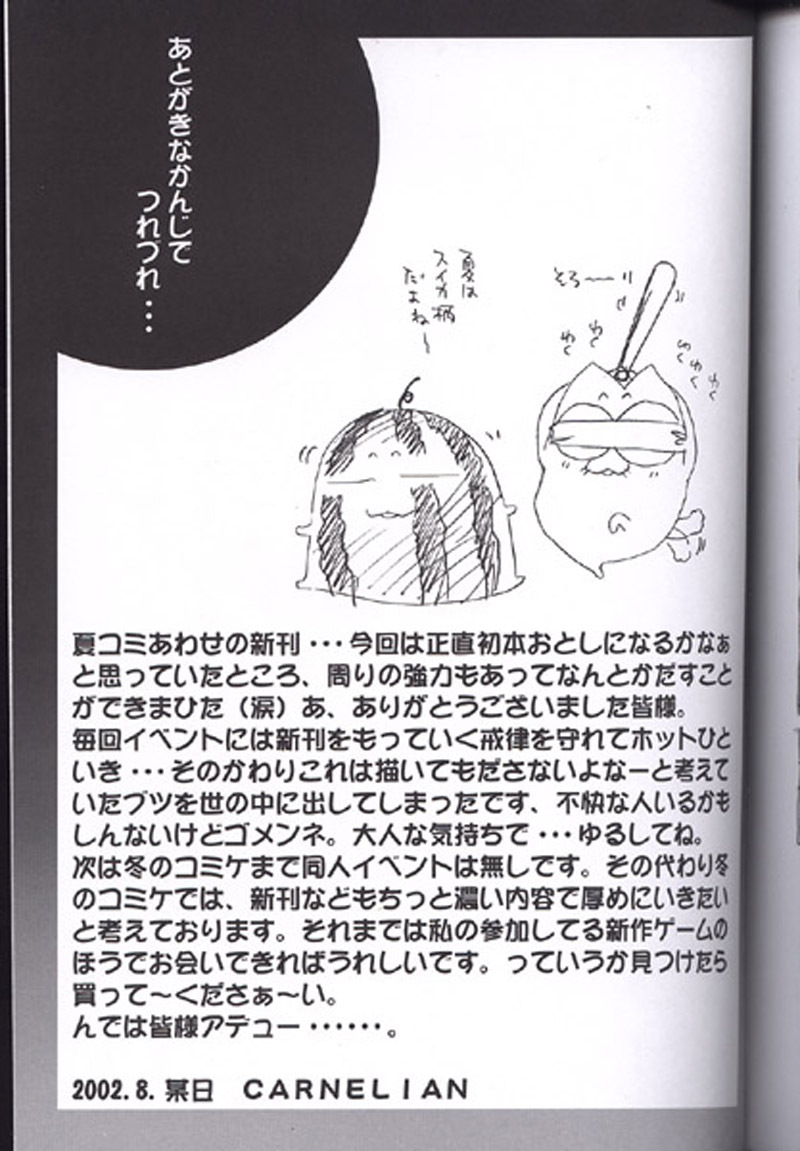 あとがきなかんじで
つれづれ・・・
夏は
スイカ柄
だよね〜
そろ〜〜
わく
わく
わく
わく
わく
夏コミあわせの新刊・・・今回は正直初本おとしになるかなぁ
と思っていたところ、周りの強力もあってなんとかだすこと
ができまひた（涙）あ、ありがとうございました皆様。
毎回イベントには新刊をもっていく戒律を守れてホットひと
いき・・・そのかわりこれは描いてもださないよなーと考えて
いたブツを世の中に出してしまったです、不快な人いるかも
しんないけどゴメンネ。大人な気持ちで・・・ゆるしてね。
次は冬のコミケまで同人イベントは無しです。その代わり冬
のコミケでは、新刊などもちっと濃い内容で厚めにいきたい
と考えております。それまでは私の参加してる新作ゲームの
ほうでお会いできればうれしいです。っていうか見つけたら
買って〜くださぁ〜い。
んでは皆様アデュー・・・・・・。
2002.8.某日　CARNELIAN